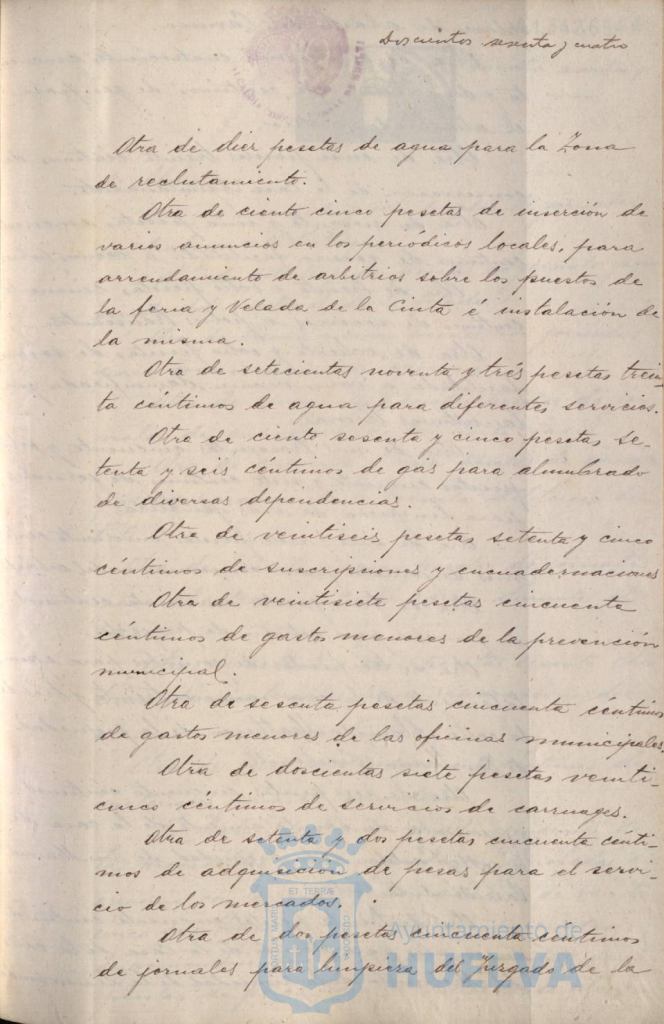 Doscientos sesenta y cuatro
Otra de diez pesetas de agua para la Zona
de reclutamiento.
Otra de ciento cinco pesetas de inserción de
varios anuncios en los periódicos locales, para
arrendamiento de arbitrios sobre los puestos de
la feria y Velada de la Cinta é instalación de
la misma.
Otra de setecientas noventa y trés pesetas trein-
ta céntimos de agua para diferentes servicios.
Otra de ciento sesenta y cinco pesetas se-
tenta y seis céntimos de gas para alumbrado
de diversas dependencias.
Otra de veintiseis pesetas setenta y cinco
céntimos de suscripciones y encuadernaciones
Otra de veintisiete pesetas cincuenta
céntimos de gastos menores de la prevención
municipal.
Otra de sesenta pesetas cincuenta céntimos
de gastos menores de las oficinas municipales.
Otra de doscientas siete pesetas veinti-
cinco céntimos de servicios de carruages.
Otra de setenta y dos pesetas cincuenta cénti-
mos de adquisición de pesas para el servi-
cio de los mercados.
Otra de dos pesetas cincuenta céntimos
de jornales para limpieza del Juzgado de la
ET TERRÆ
Ayuntamiento de
HUELVA